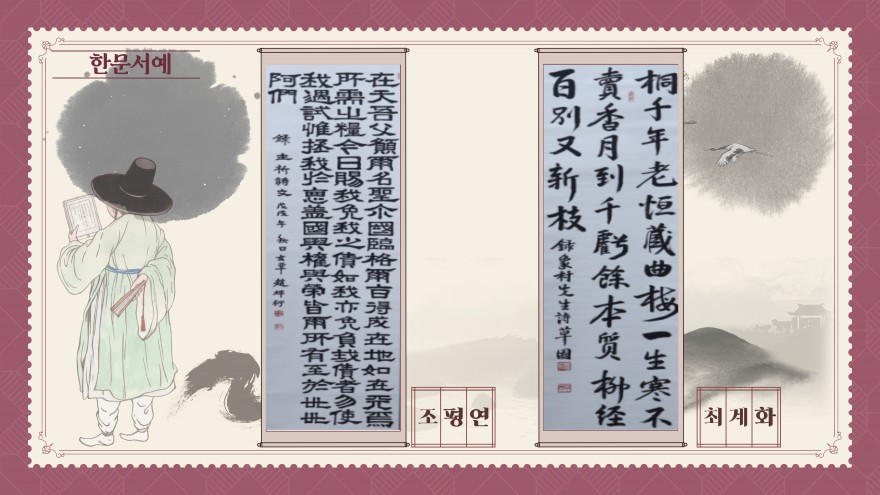 한문서예
在天吾父願爾名聖尒國臨格爾旨得成在地如在天焉
所需之糧今日賜我免我之債如我亦免負我債者勿使
我遇試惟拯我於惡蓋國與權與榮皆爾所有至於世世
阿們
錄 主祈禱文 戊戌年
조평연
桐千年老恒藏曲梅一生寒不
賣香月到千虧餘本質柳経
百別又新枝
錄象村先生詩草園
최계화